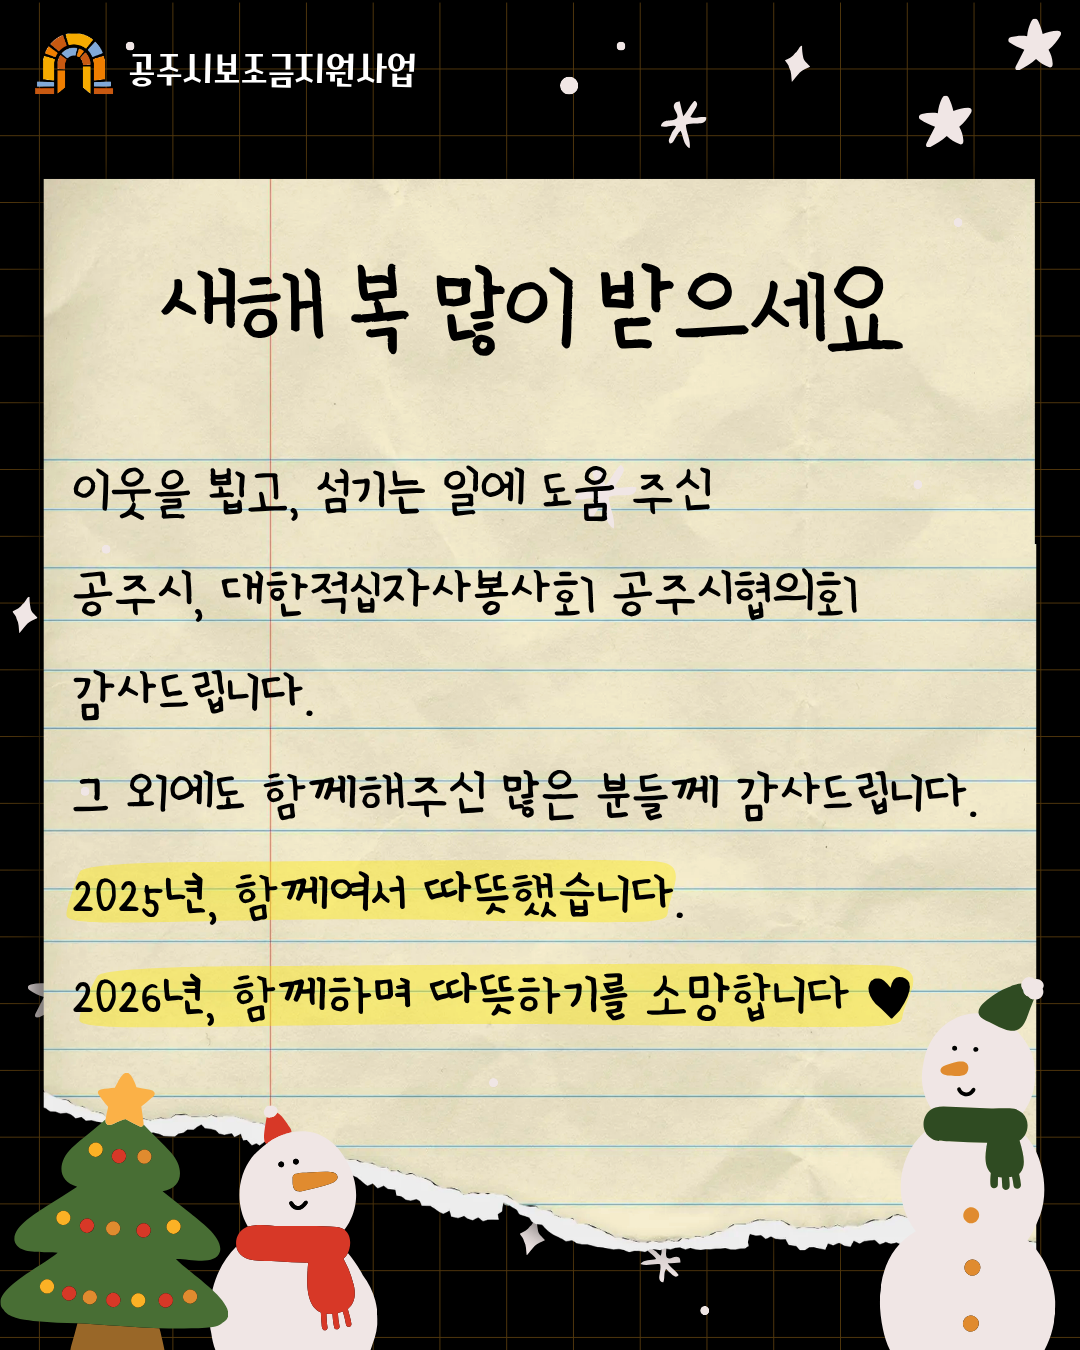 공주시보조금지원사업
새해 복 많이 받으세요
이웃을 뵙고, 섬기는 일에 도움 주신
공주시, 대한적십자사봉사회 공주시협의회
감사드립니다.
그 외에도 함께해주신 많은 분들께 감사드립니다.
2025년, 함께여서 따뜻했습니다.
2026년, 함께하며 따뜻하기를 소망합니다 ♥